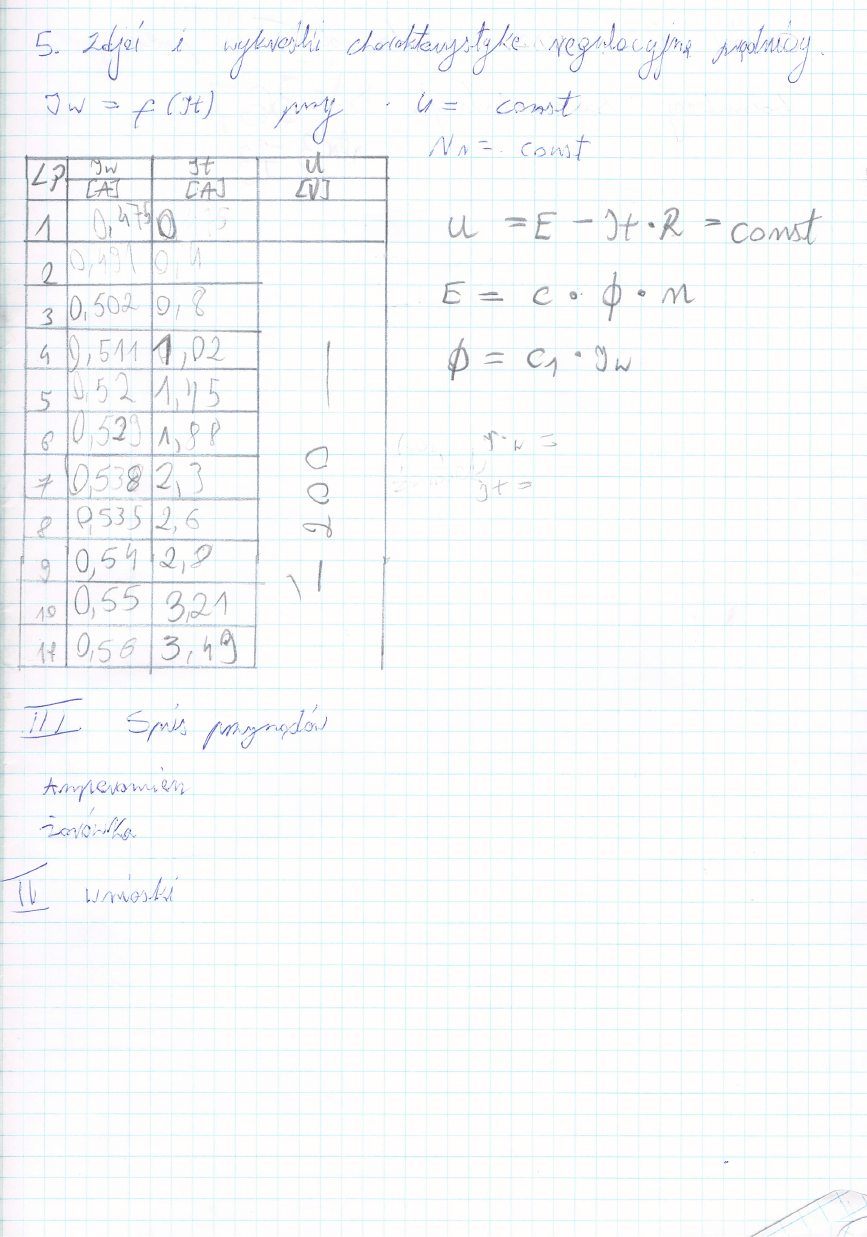 5. Zdjąć i wykreślić charakterystykę regulacyjną prądnicy.
Iw = f(It) przy U = const
Nn = const
LP Iw It U
[A] [A] [V]
1 0,475 0
2 0,491 0,4
3 0,502 0,8
4 0,511 1,02
5 0,52 1,45
6 0,529 1,88
7 0,538 2,3
8 0,535 2,6
9 0,54 2,8
10 0,55 3,21
11 0,56 3,49
200
U = E - It · R = const
E = c · ϕ · n
ϕ = c1 · Iw
It =
III Spis przyrządów
Amperomierz
żarówka
IV Wnioski